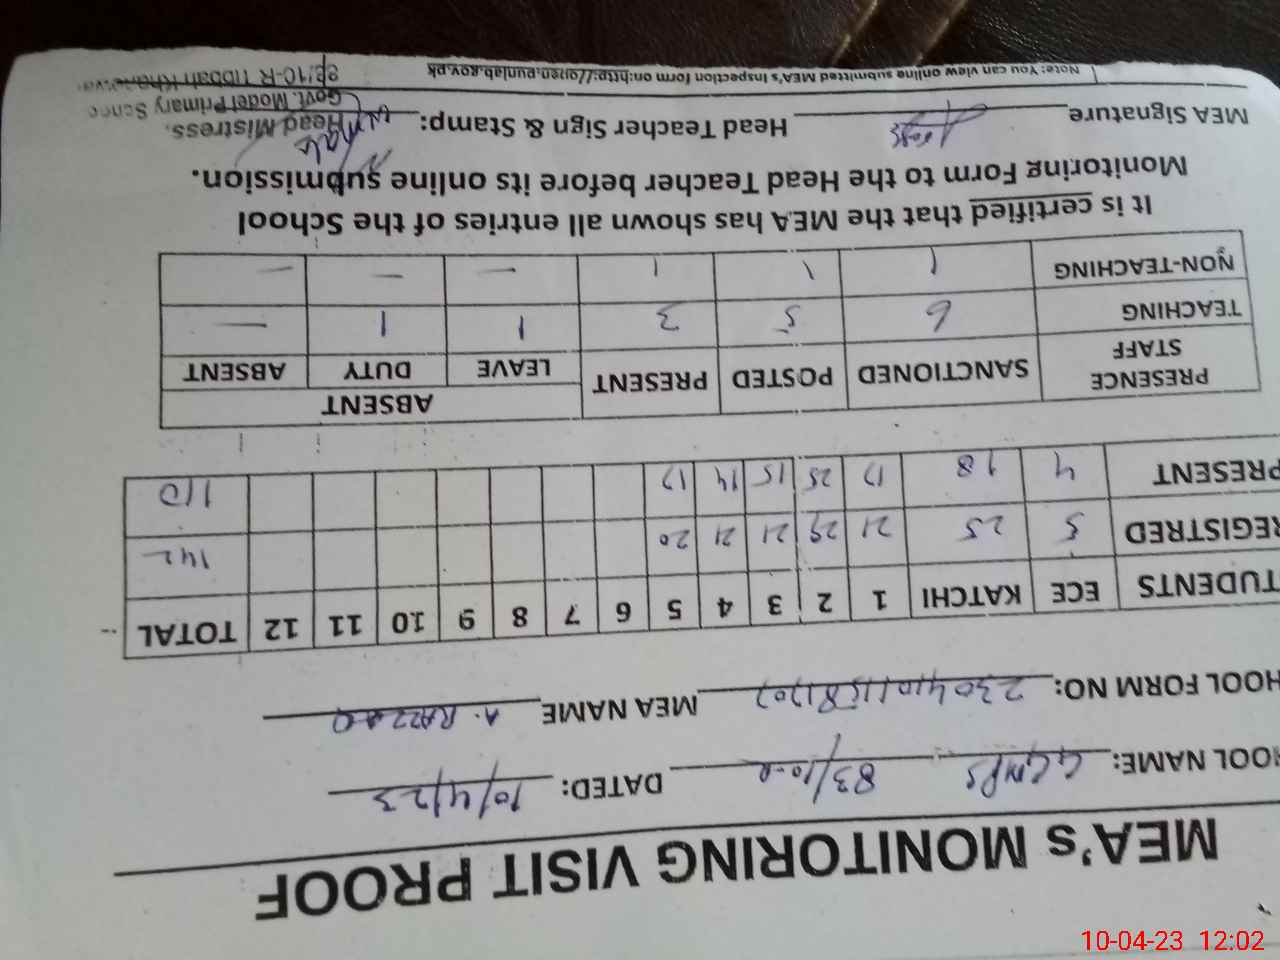 MEA's MONITORING VISIT PROOF
HOOL NAME: GGMPS 83/10-R DATED: 10/4/23
HOOL FORM NO: MEA NAME A. RAZZAQ
TUDENTS ECE KATCHI 1 2 3 4 5 6 7 8 9 10 11 12 TOTAL
REGISTRED 5 25 21 29 21 21 20 142
PRESENT 4 18 17 25 15 14 17 110
PRESENCE STAFF SANCTIONED POSTED PRESENT ABSENT
LEAVE DUTY ABSENT
TEACHING 6 5 3 1 1 —
NON-TEACHING 1 1 1 — — —
It is certified that the MEA has shown all entries of the School
Monitoring Form to the Head Teacher before its online submission.
MEA Signature Head Teacher Sign & Stamp: Head Mistress.
Govt. Model Primary
Note: You can view online submitted MEA's inspection form on:http://open.punjab.gov.pk
10-04-23 12:02